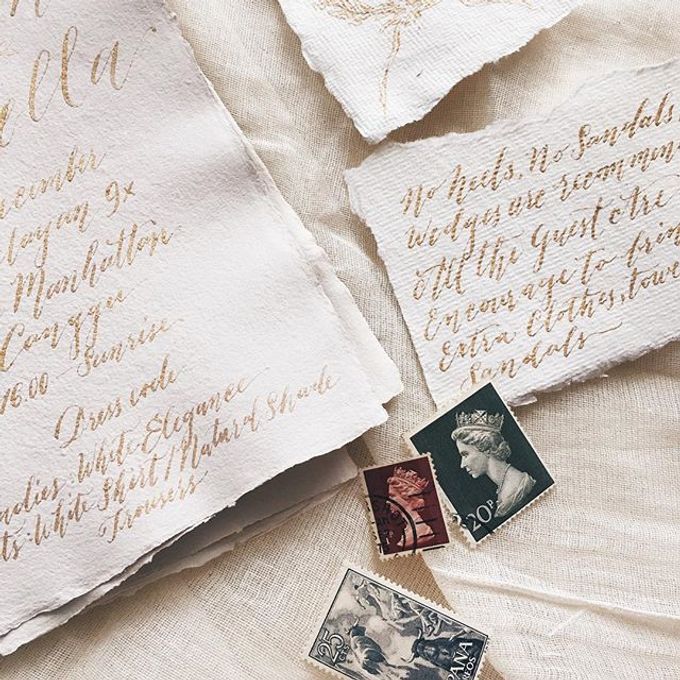 ella
ecember
ayan 9x
Manhattan
Canggu
16.00 - Sunrise
Dress code
adies : White Elegance
ts : White Shirt / Natural Shade
Trousers
No heels, No Sandals,
Wedges are recommen
All the Guest Are
Encourage to brin
Extra Clothes, towe
Sandals
20P
25
CTS
PAÑA
RREOS